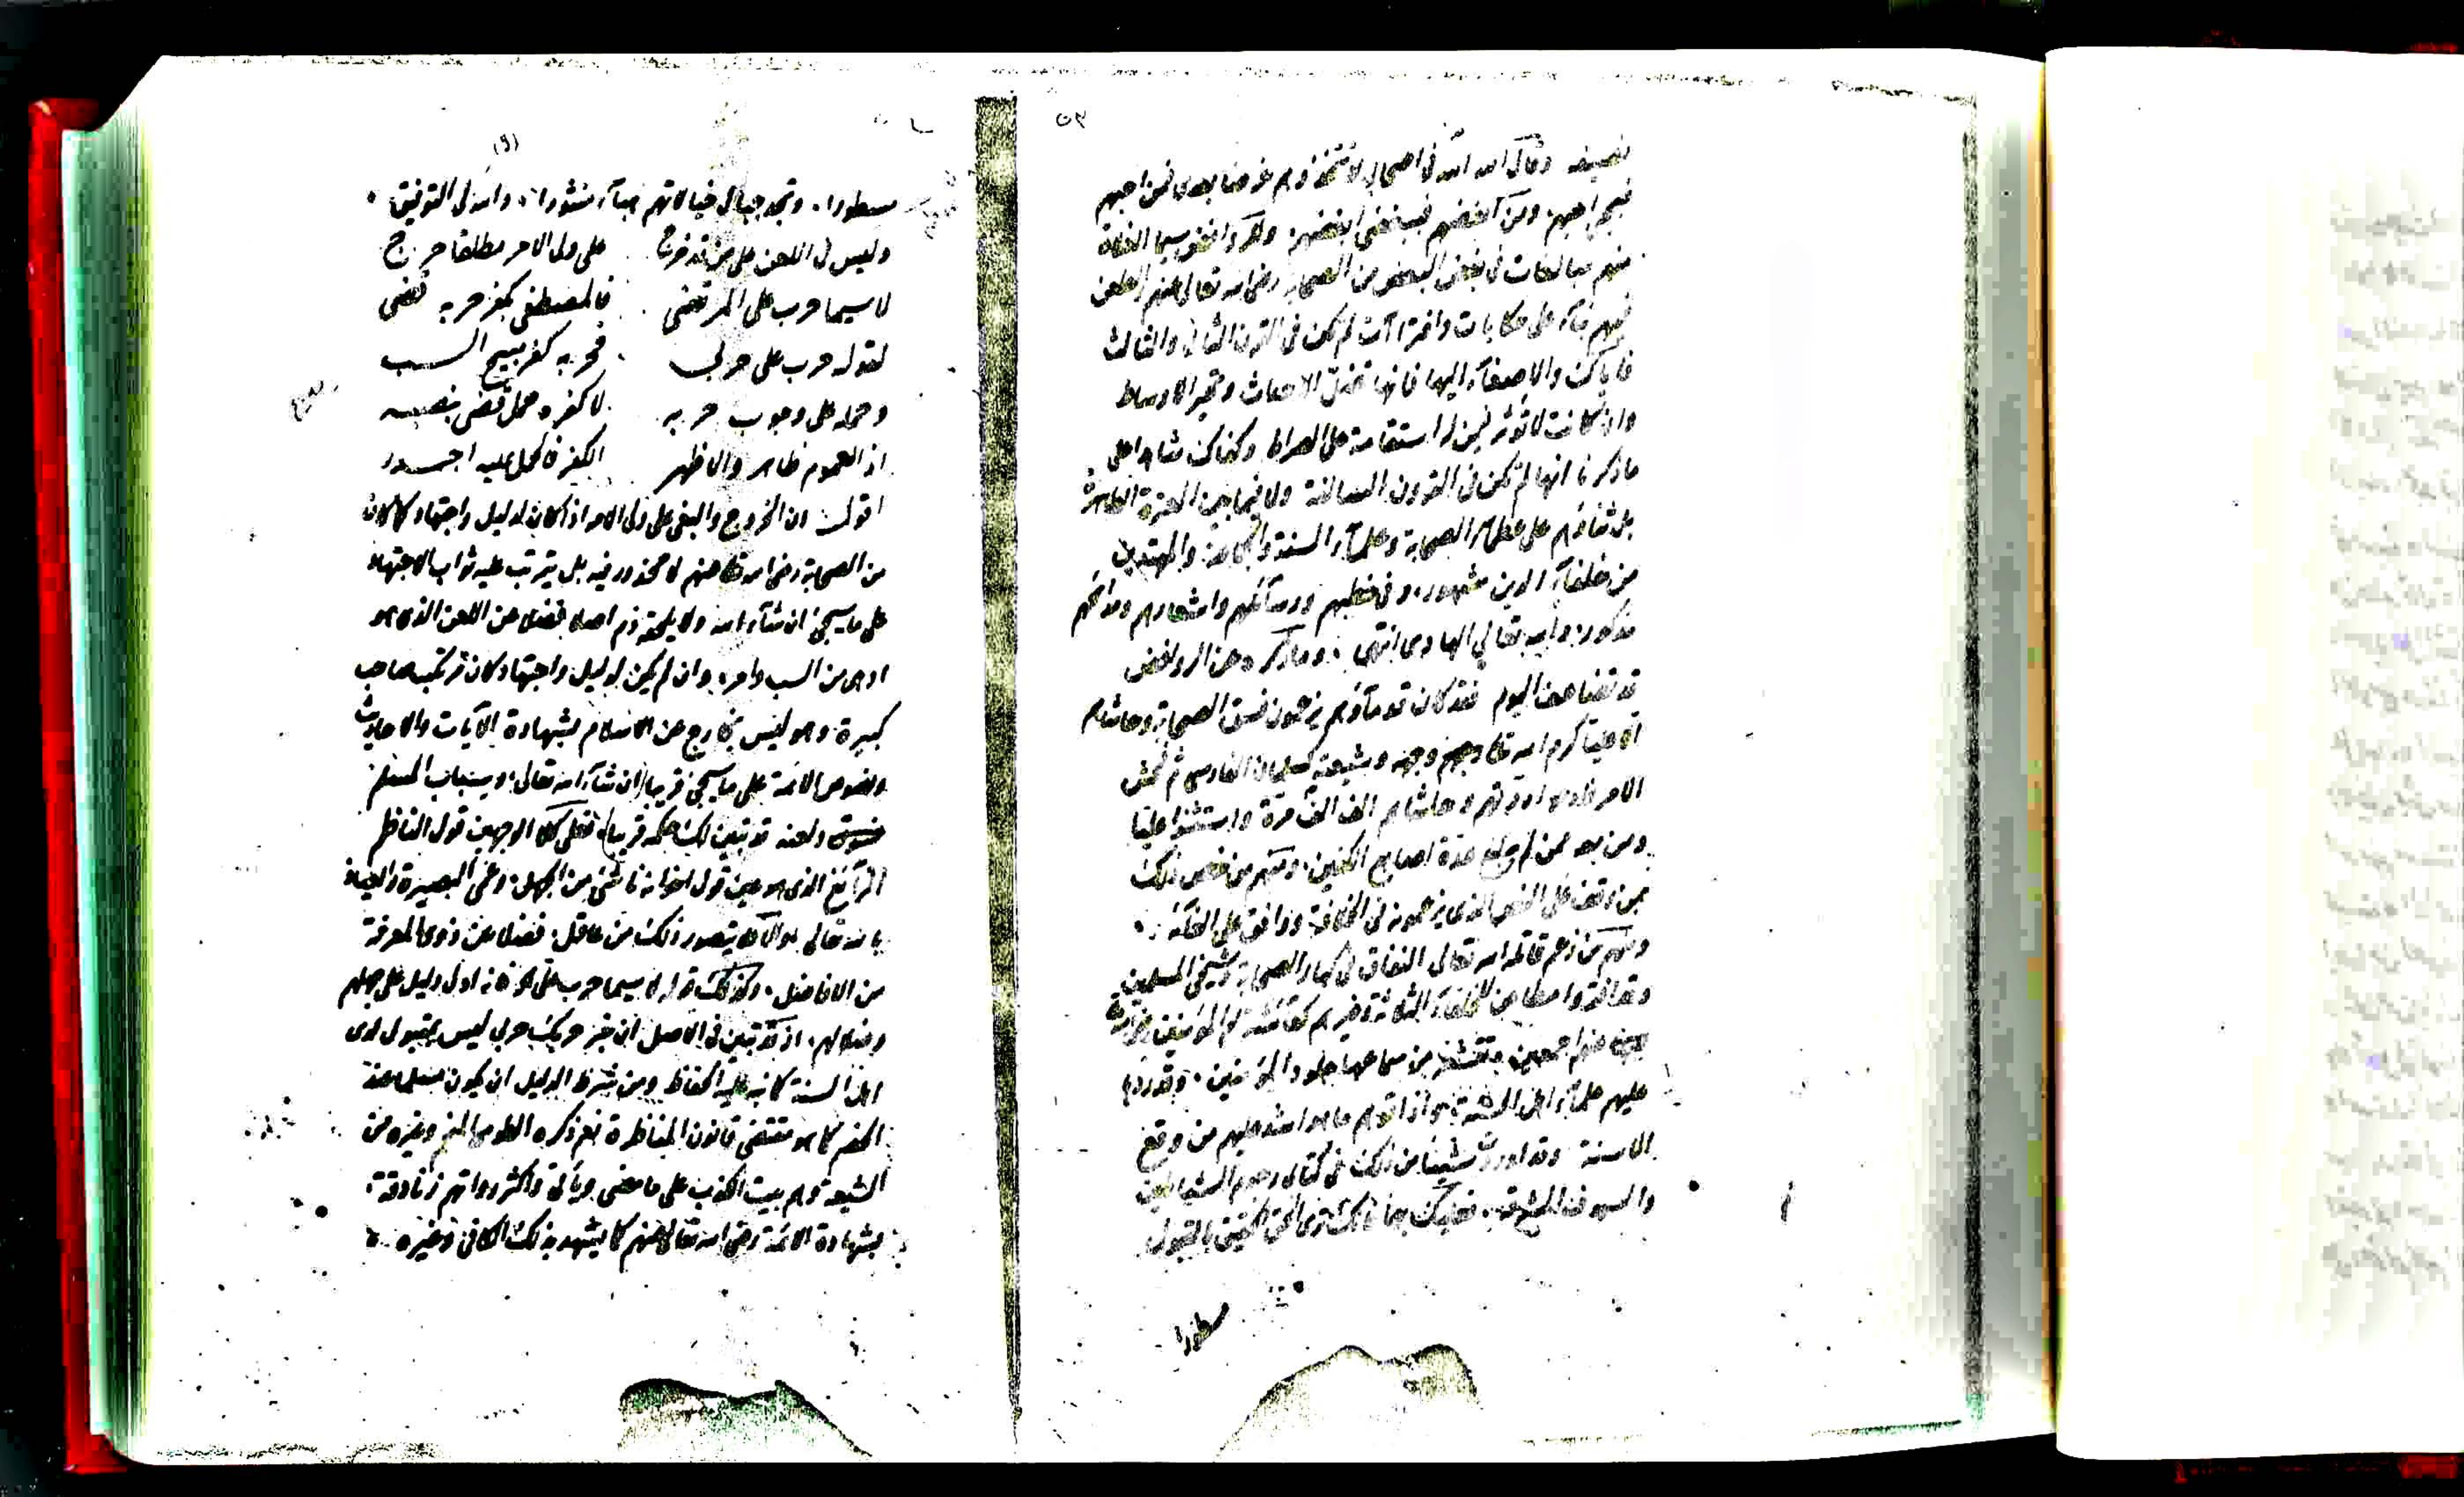 ٥٣
نصيفه وقال الله الله في اصحابي لا تتخذوهم غرضا بعدي فمن احبهم
فبحبي احبهم ومن ابغضهم فببغضي ابغضهم وللروافض سيما الغلاة
منهم مبالغات في بغض البعض من الصحابة رضي الله تعالى عنهم والطعن
فيهم بنآء على حكايات وافترآآت لم تكن في القرن الثاني والثالث
فاياك والاصغآء اليها فانها تضل الاحداث وتحير الاوساط
وان كانت لا تؤثر فيمن له استقامة على الصراط وكفاك شاهدا على
ما ذكرنا انها لم تكن في القرون السالفة ولا فيما بين العترة الطاهرة
بل ثناؤهم على عظماء الصحابة وعلمآء السنة والجماعة والمهتدين
من خلفآء الدين مشهور، وفي خطبهم ورسائلهم واشعارهم ومدائحهم
مذكور، والله تعالى الهادي انتهى . وما ذكره عن الروافض
قد تضاعف اليوم فقد كان قدمآؤهم يزعمون فسق الصحابة وحاشاهم
الا عليا كرم الله تعالى وجهه وشيعته كسلمان الفارسي ثم فحش
الامر فادعوا ردتهم وحاشاهم الف الف مرة واستثنوا عليا
ومن معه ممن لم يبلغ عدة اصابع الكفين، ومنهم من خص ذلك
بمن وقف على النص الذي يزعمونه في الخلافة ووافق على الخلافة .
ومنهم من زعم قاتله الله تعالى النفاق في كبار الصحابة وشيخي المسلمين
وقد افتروا مطاعن للخلفآء الثلاثة وغيرهم كعائشة ام المؤمنين رضي الله
عنهم اجمعين تقشعر من سماعها جلود المؤمنين . وقد رد
عليهم علمآء اهل السنة بما هو اشد عليهم من وقع
الاسنة وقد اوردت شيئا من ذلك في كتابي رجوم الشياطين
والسيوف المشرقة . فعليك بهما فانك ترى الحق الحقيق بالقبول
مسطورا
مسطورا . وتجد جبال خيالاتهم هبآء منثورا، والله ولي التوفيق .
وليس في اللعن على من قد خرج على ولي الامر مطلقا حرج
لا سيما حرب علي المرتضى فالمصطفى بكفر حربه قضى
لقوله حرب علي حربي فحربه كفر يبيح السب
وحمله على وجوب حربه لا كفره حمل قضى بنصبه
اذ العموم ظاهر والاظهر الكفر فالحمل عليه اجدر
اقول ان الخروج والبغي على ولي الامر اذا كان لدليل واجتهاد كما كان
من الصحابة رضي الله تعالى عنهم لا محذور فيه بل يترتب عليه ثواب الاجتهاد
على ما سيجئ ان شآء الله ولا يلحقه ذم اصلا فضلا عن اللعن الذي هو
ادهى من السب وامر، وان لم يكن لدليل واجتهاد كان مرتكبه صاحب
كبيرة وهو ليس بخارج عن الاسلام بشهادة الآيات والاحاديث
ونصوص الائمة على ما سيجئ قريبا ان شآء الله تعالى، وسباب المسلم
فسوق ولعنه قد تبين لك حكمه قريبا، فعلى كلا الوجهين قول الناظم
الزآئغ الذي هو عين قول اخوانه ناشئ من الجهل، وعمى البصيرة والعياذ
بالله تعالى والا فلا يتصور ذلك من عاقل، فضلا عن ذوي المعرفة
من الافاضل . وكذلك قوله لا سيما حرب علي الخ فانه اول دليل على جهلهم
وضلالهم، اذ قد تبين في الاصل ان خبر حربك حربي ليس بمقبول لدى
اهل السنة كما نبه عليه الحفاظ ومن شرط الدليل ان يكون مسلما عند
الخصم كما هو مقتضى قانون المناظرة نعم ذكره الطوسي وغيره من
الشيعة وهم بيت الكذب على ما مضى ويأتي واكثر رواتهم زنادقة
بشهادة الائمة رضي الله تعالى عنهم كما يشهد بذلك الكافي وغيره